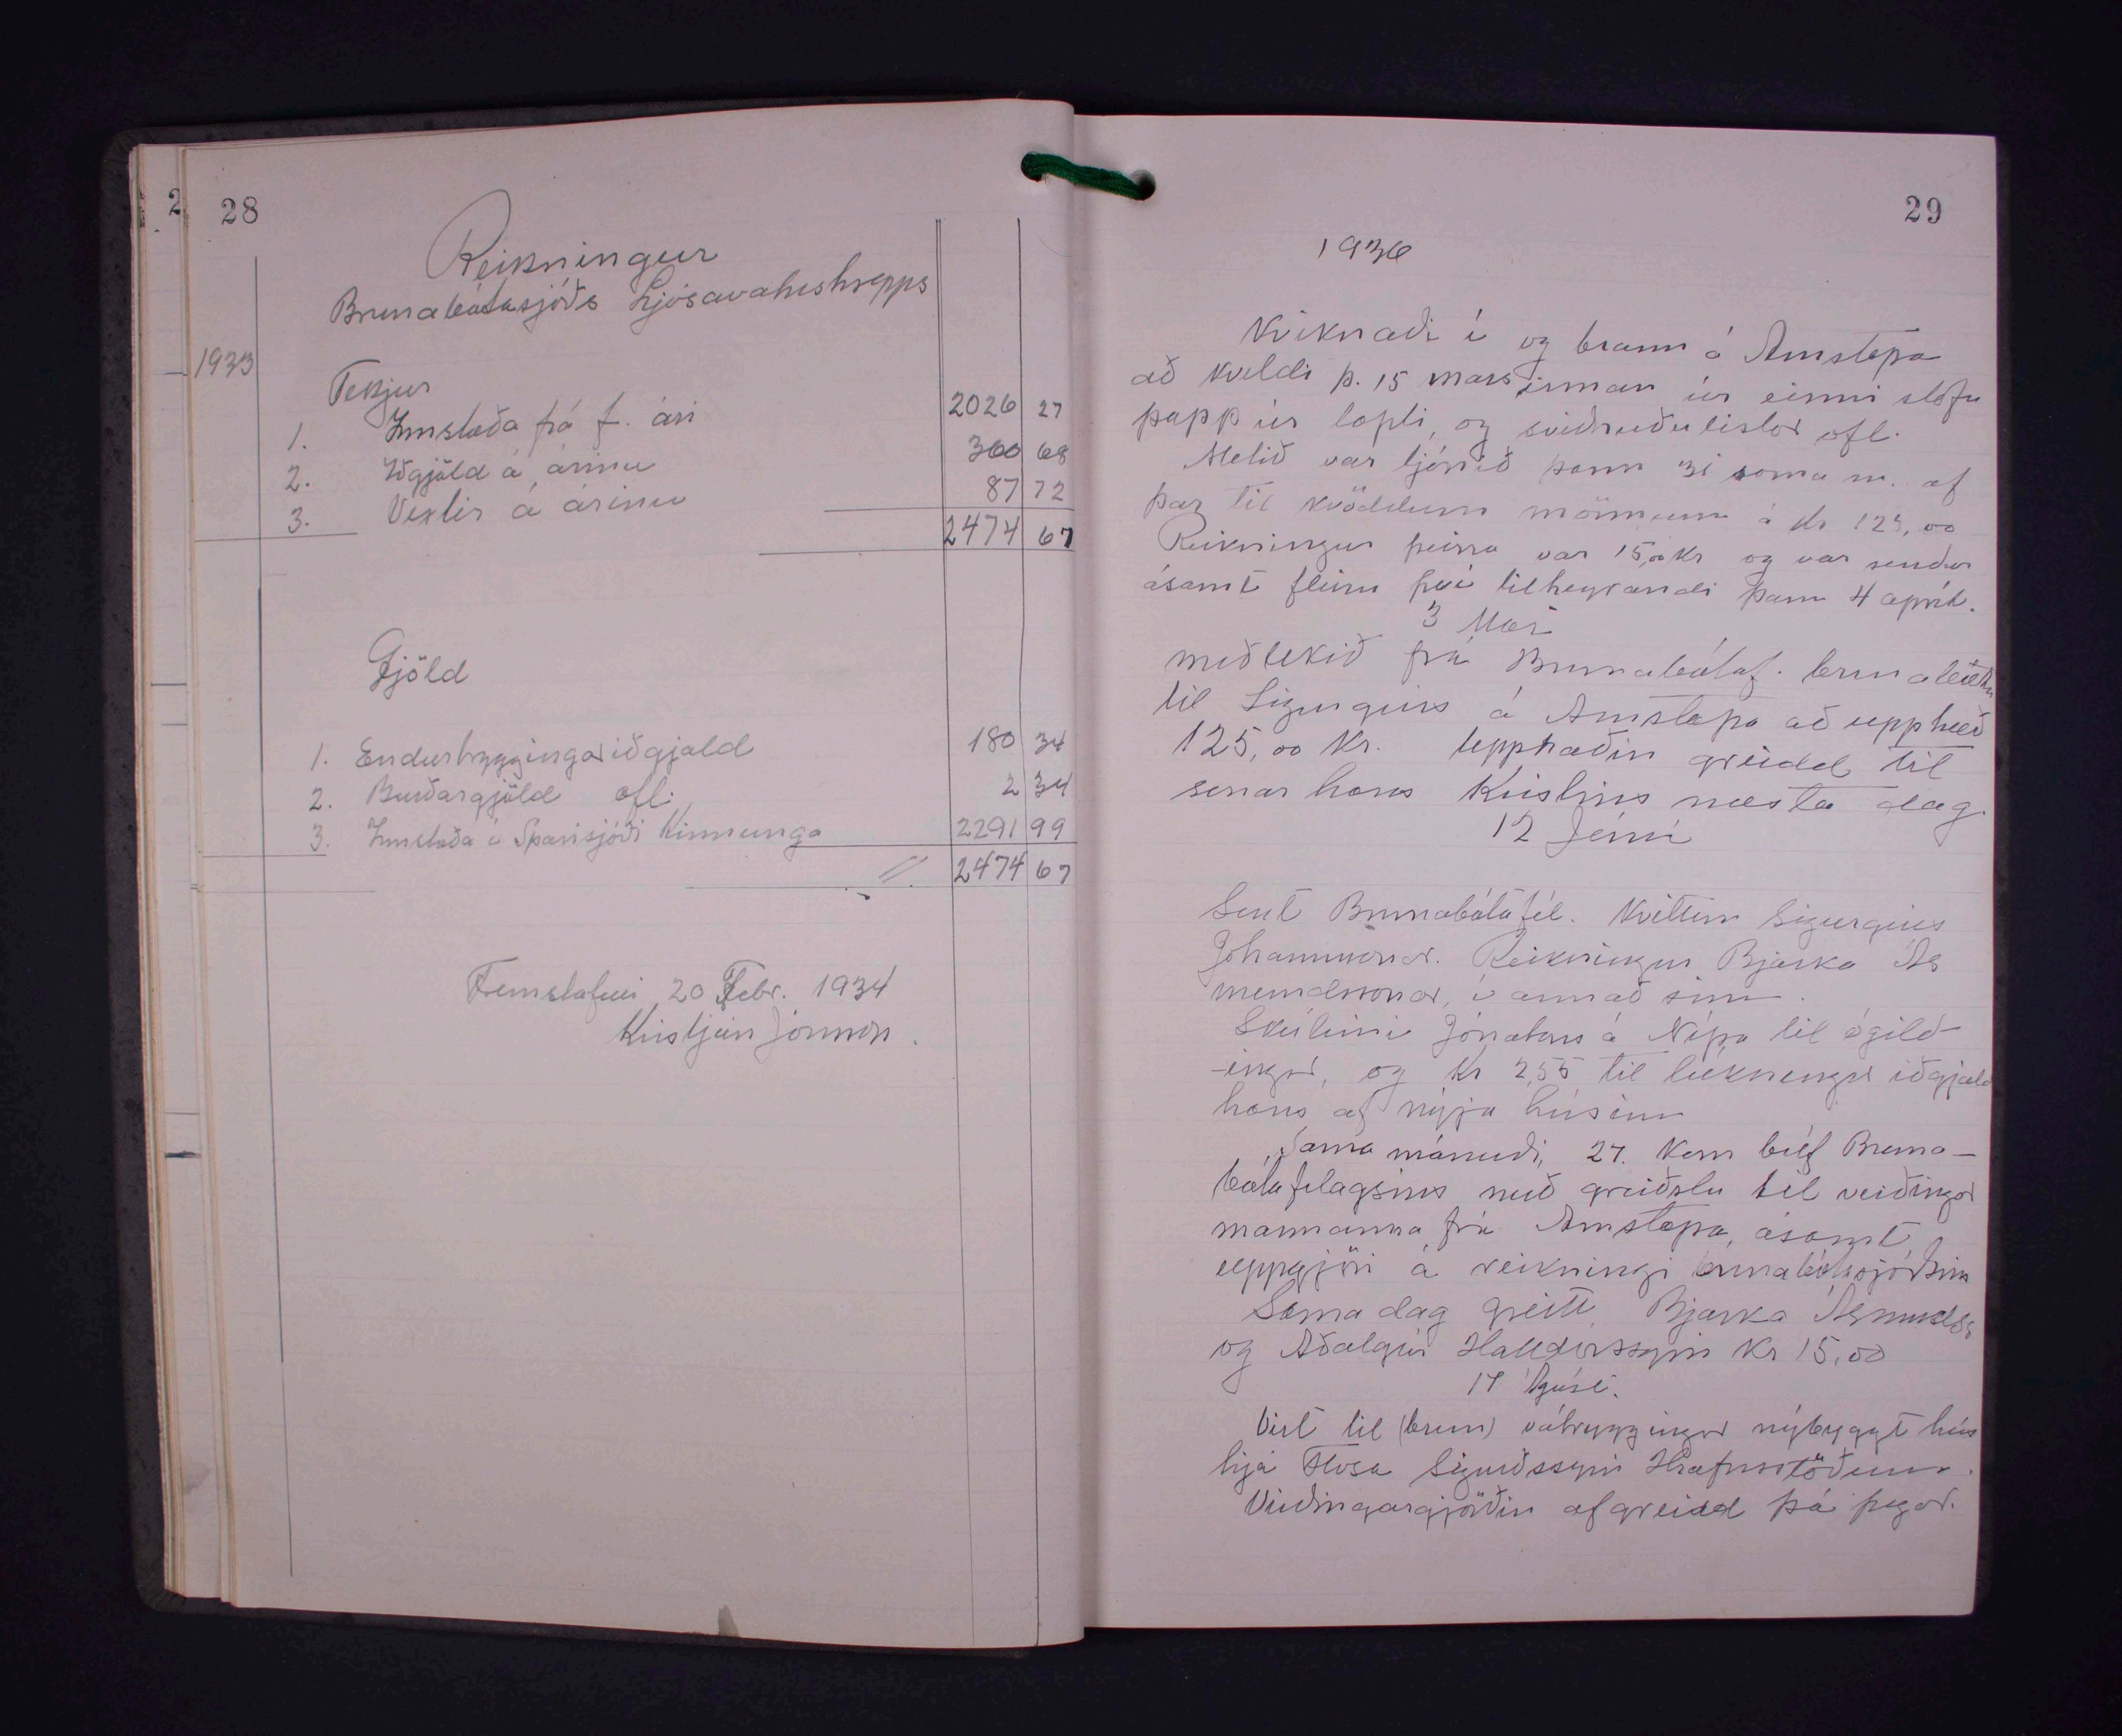 28
Reikningur
Brunabótasjóðs Ljósavatnshrepps
1933
Tekjur
1. Innstæða frá f. ári 2026 27
2. Iðgjöld á árinu 360 68
3. Vextir á árinu 87 72
2474 67
Gjöld
1. Endurtryggingariðgjald 180 34
2. Burðargjöld ofl. 2 34
3. Innstæða í Sparisjóði Kinnunga 2291 99
2474 67
Fremstafelli 20 Febr. 1934
Kristján Jónsson.
29
1936
Kviknaði í og brann á Arnstapa
að kveldi þ. 15 mars innan úr einni stofu
papp úr lopti, og ofl.
Metið var tjónið þann 31 sama m. af
þar til kvöddum mönnum á Kr 125,00
Reikningur þeirra var 15,00 kr og var sendur
ásamt fleiru því tilheyrandi þann 4 apríl.
3 Maí
meðtekið frá Brunabótaf. brunabætur
til Sigurgeirs á Arnstapa að upphæð
125,00 Kr. Upphæðin greidd til
sonar hans Kristins næsta dag
12 Júní
Sent Brunabótafél. Kvittun Sigurgeirs
Jóhannssonar. Reikningur Bjarka Ás
mundssonar, í annað sinn.
Skúlini Jónatans á Nípá til ógild-
-ingar, og Kr 2,55 til lúkningar iðgjald
hans af nýja húsinu
Sama mánuði, 27. Kom bréf Bruna-
bótafélagsins með greiðslu til virðingar
mannanna frá Arnstapa, ásamt
uppgjöri á reikningi brunabótasjóðsins
Sama dag greitt Bjarka Ásmundss
og Aðalgeir Halldórssyni Kr 15,00
17 Ágúst.
Virt til (brun) vátryggingar nýbyggt hús
hjá Flosa Sigurðssyni Hrafnsstöðum.
Virðingargjörðin afgreidd þá þegar.